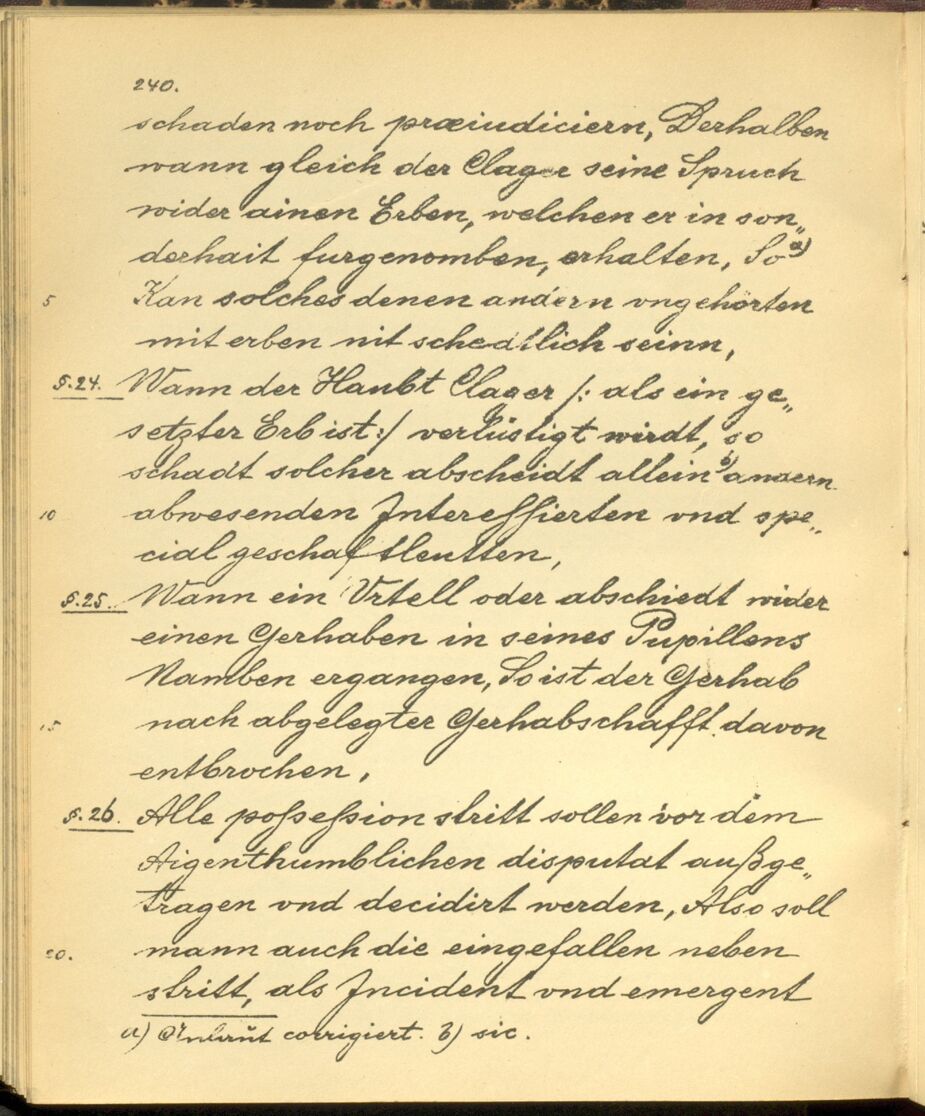 240.
schaden noch præiudiciern, Derhalben
wann gleich der Clager seine Spruch
wider ainen Erben, welchen er in son„
derhait furgenomben, erhalten, So a)
5 Kan solches denen andern vngehörten
mit erben nit schedtlich seinn,
§.24. Wann der Haubt Clager /: als ein ge„
setzter Erb ist :/ verlüstigt wirdt, so
schadt solcher abscheidt allein b) andern
10 abwesenden Interessierten vnd spe„
cial geschafftleutten,
§.25. Wann ein Vrtell oder abschiedt wider
einen Gerhaben in seines Pupillens
Namben ergangen, So ist der Gerhab
15 nach abgelegter Gerhabschafft davon
entbrochen,
§.26. Alle possession stritt sollen vor dem
Aigenthumblichen disputat außge„
tragen vnd decidirt werden, Also soll
20. mann auch die eingefallen neben
stritt, als Incident vnd emergent
a) corrigiert. b) sic.